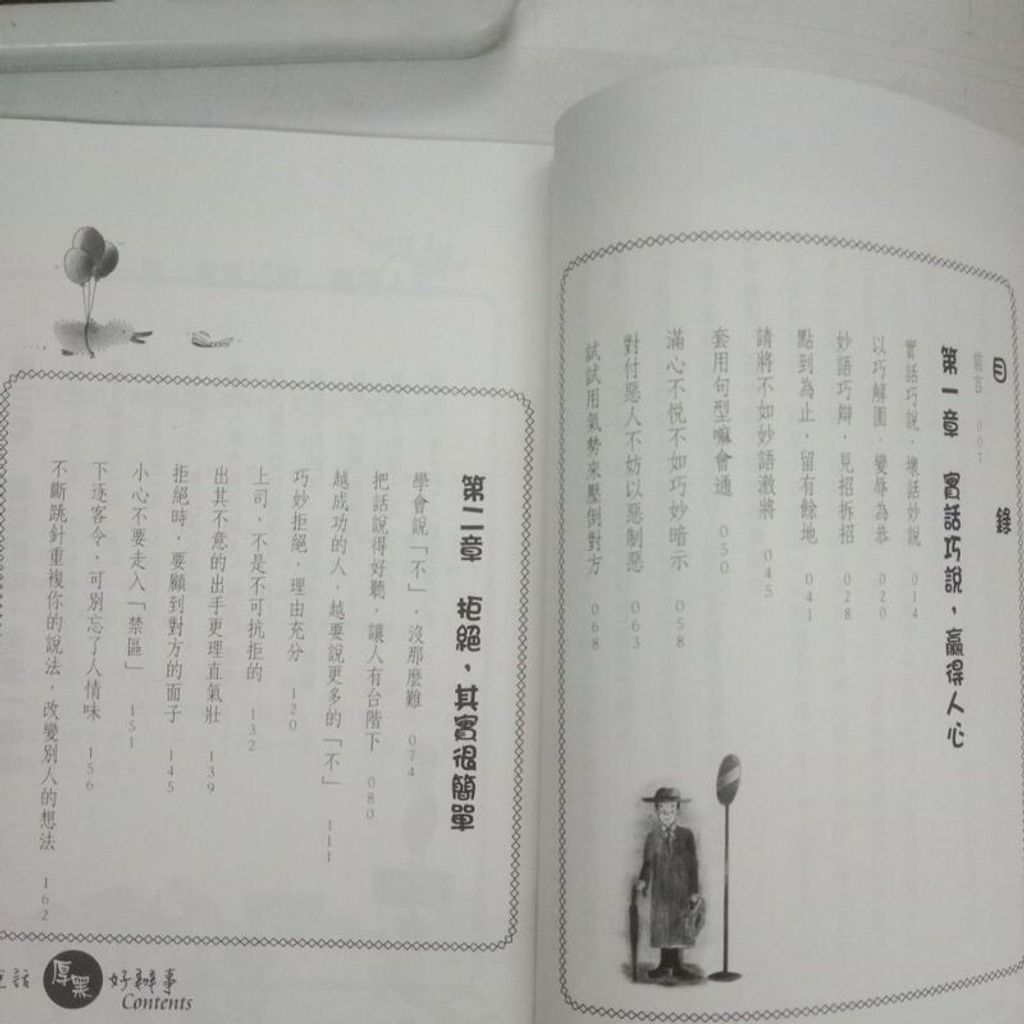 目錄
前言 007
第一章 實話巧說，贏得人心
實話巧說，壞話妙說 014
以巧解圍，變辱為恭 020
妙語巧辯，見招拆招 028
點到為止，留有餘地 041
請將不如妙語激將 045
套用句型嘛會通 050
滿心不悅不如巧妙暗示 058
對付惡人不妨以惡制惡 063
試試用氣勢來壓倒對方 068
第二章 拒絕，其實很簡單
學會說「不」，沒那麼難 074
把話說得好聽，讓人有台階下 080
越成功的人，越要說更多的「不」 111
巧妙拒絕，理由充分 120
上司，不是不可抗拒的 132
出其不意的出手更理直氣壯 139
拒絕時，要顧到對方的面子 145
小心不要走入「禁區」 151
下逐客令，可別忘了人情味 156
不斷跳針重複你的說法，改變別人的想法 162
話 厚黑 好辦事
Contents